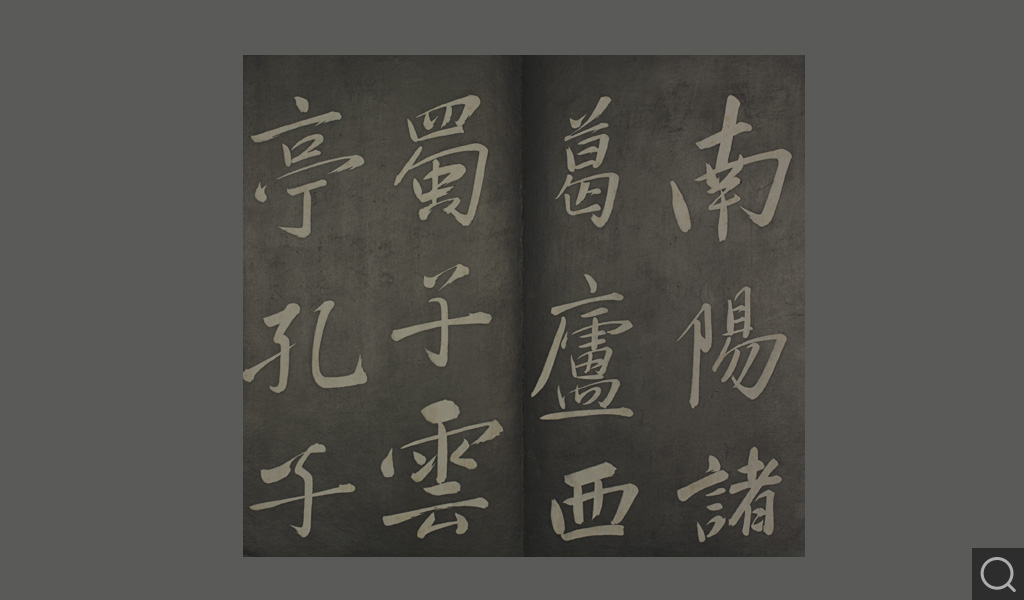 南陽諸
葛廬西
蜀子雲
亭孔子